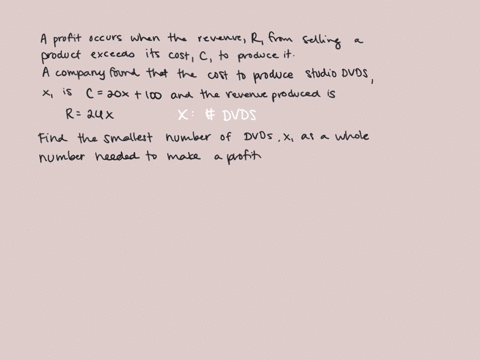 A profit occurs when the revenue, R, from selling a
product exceeds its cost, C, to produce it.
A company found that the cost to produce studio DVDS,
x, is C = 20x + 100 and the revenue produced is
R = 24x X: # DVDS
Find the smallest number of DVDs, x, as a whole
number needed to make a profit